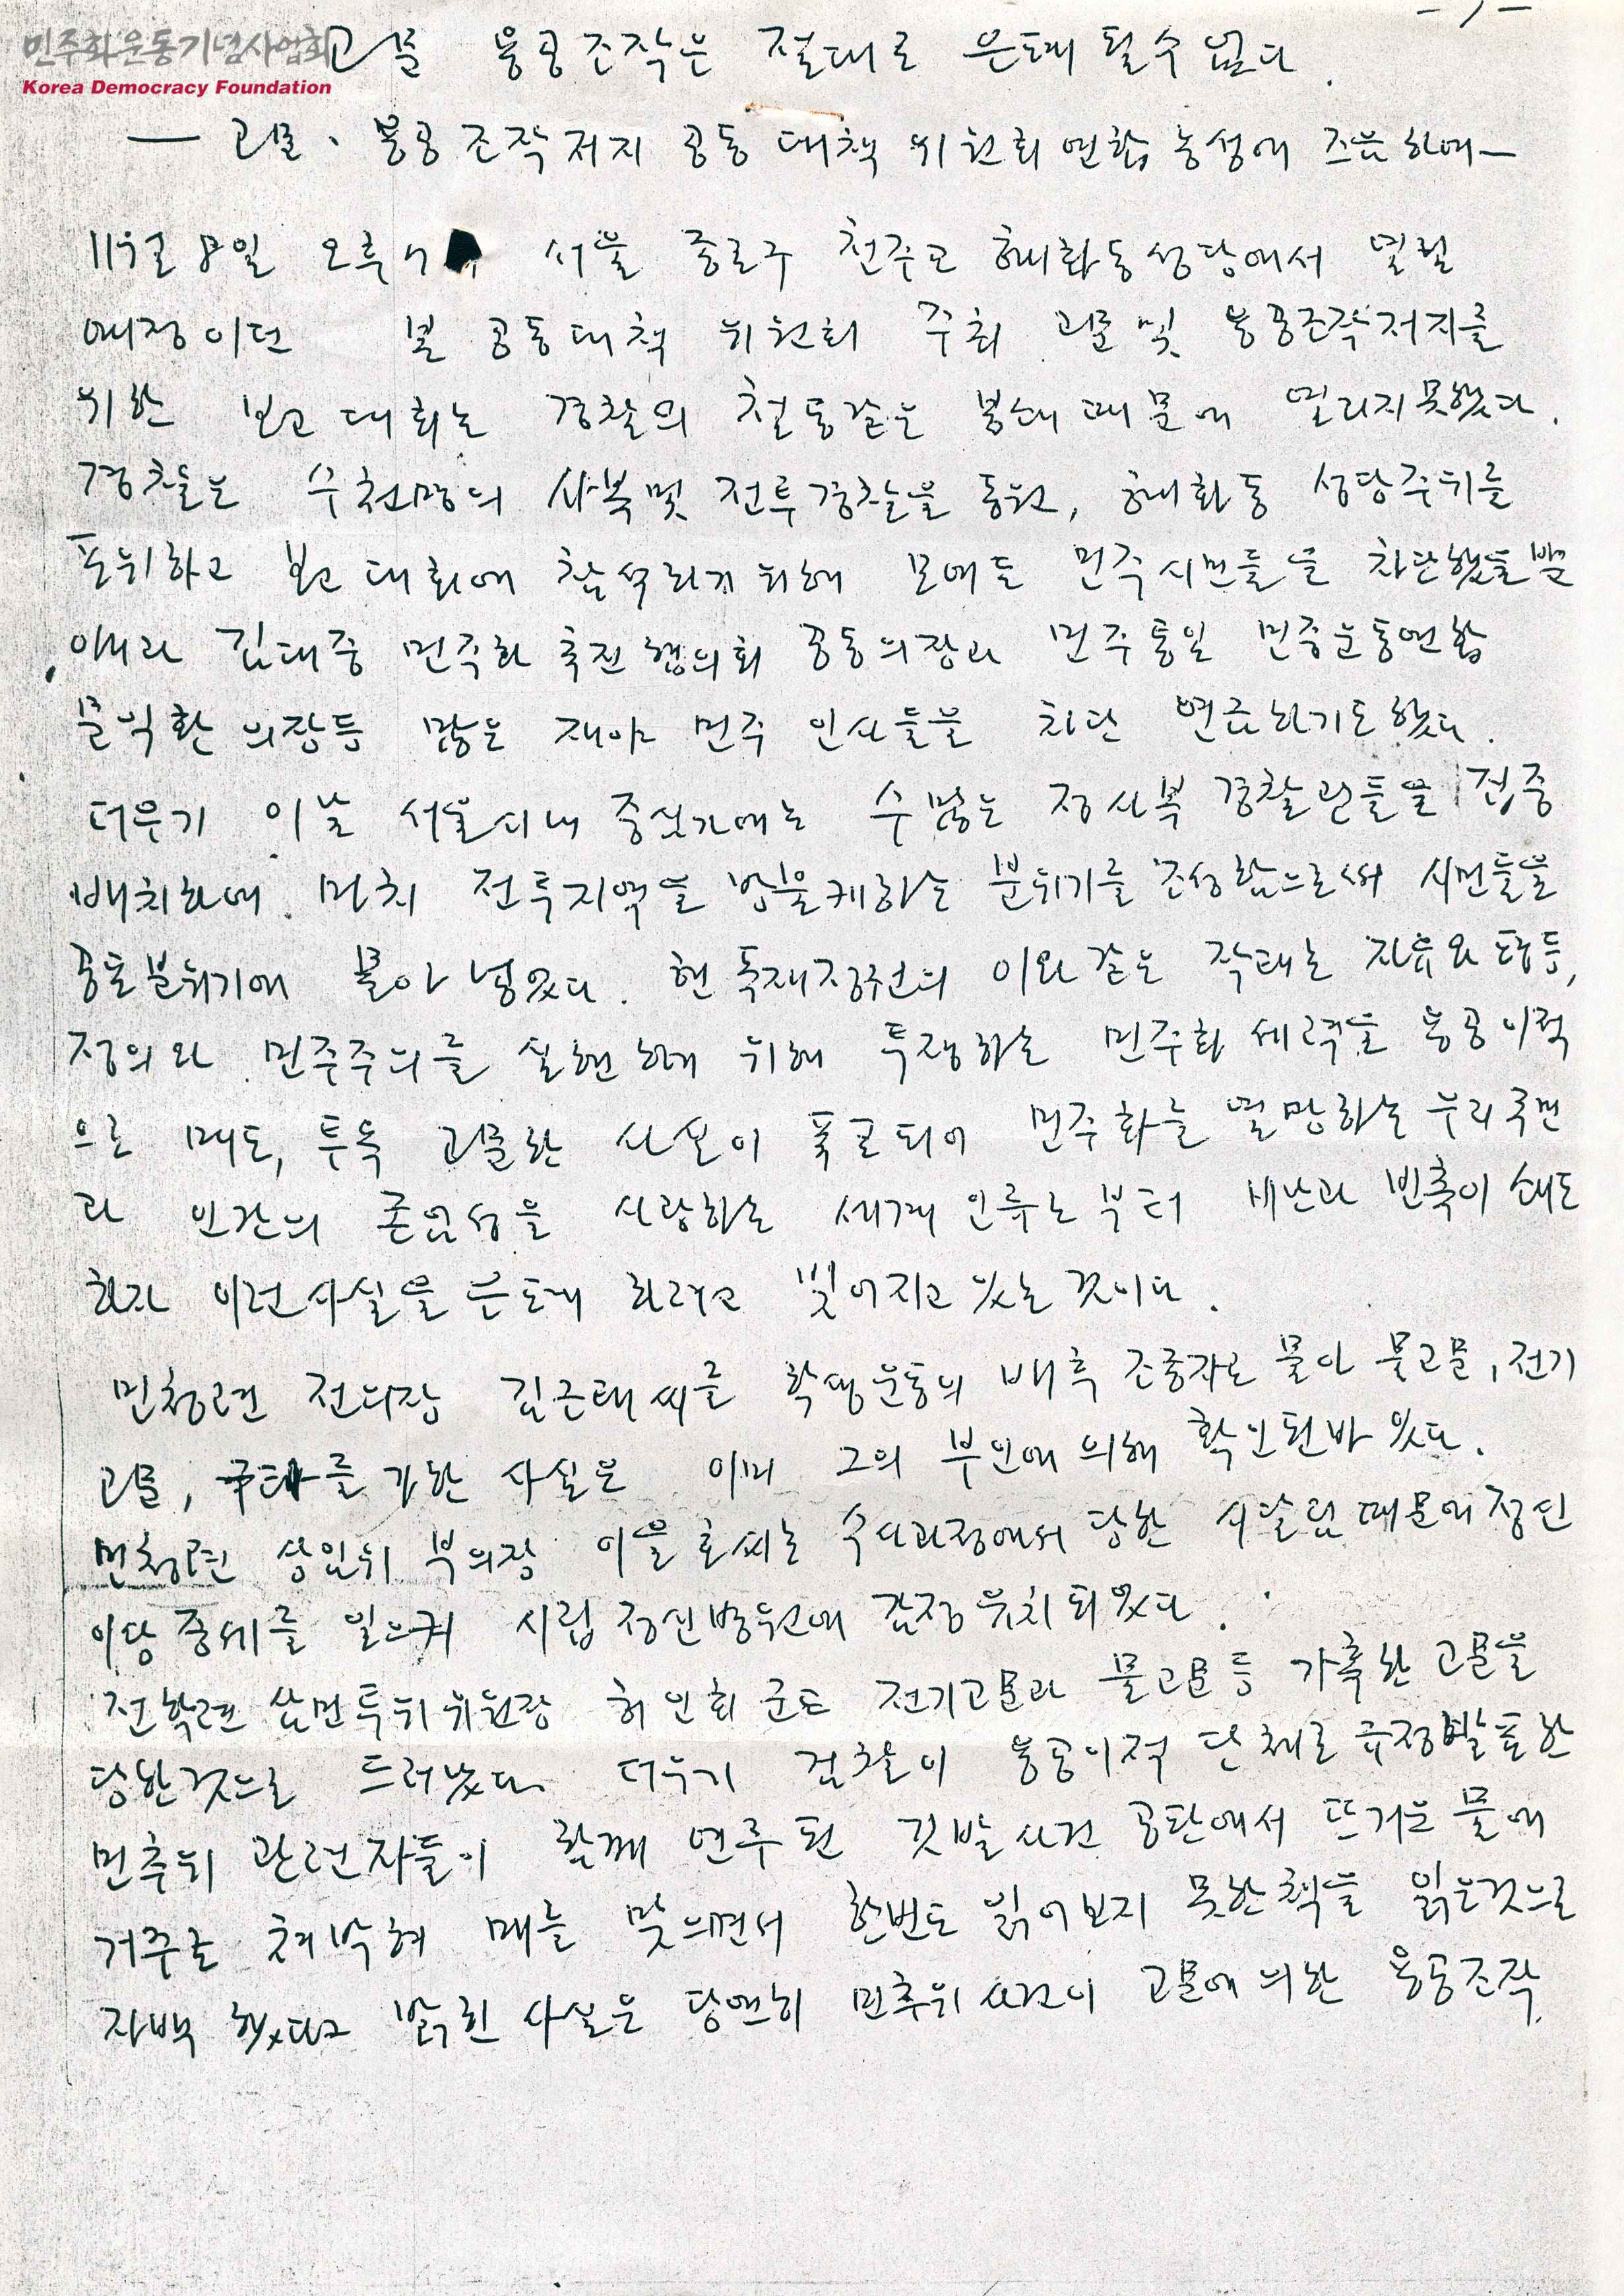 -1-
민주화운동기념사업회
Korea Democracy Foundation
고문 용공조작은 절대로 은폐 될수 없다.
— 고문·용공조작저지 공동대책위원회 연합농성에 즈음하여—
11월 8일 오후 서울 종로구 천주교 혜화동성당에서 열릴
예정이던 본 공동대책 위원회 주최 고문 및 용공조작저지를
위한 보고대회는 경찰의 철통같은 봉쇄 때문에 열리지 못했다.
경찰은 수천명의 사복 및 전투경찰을 동원, 혜화동 성당주위를
포위하고 보고대회에 참석하기 위해 모여든 민주시민들을 차단했을뿐
아니라 김대중 민주화 추진협의회 공동의장과 민주통일 민중운동연합
문익환 의장등 많은 재야 민주 인사들을 차단 연금하기도 했다.
더우기 이날 서울시내 중심가에는 수많은 정사복 경찰관들을 집중
배치하여 마치 전투지역을 방불케하는 분위기를 조성함으로써 시민들을
공포분위기에 몰아 넣었다. 현 독재정권의 이와 같은 작태는 자유와 평등,
정의와 민주주의를 실현하기 위해 투쟁하는 민주화 세력을 용공이적
으로 매도, 투옥 고문한 사실이 폭로되어 민주화를 열망하는 우리국민
과 인간의 존엄성을 사랑하는 세계 인류로부터 비난과 빈축이 쇄도
하자 이런사실을 은폐 하려고 빚어지고 있는 것이다.
민청련 전의장 김근태씨를 학생운동의 배후 조종자로 몰아 물고문, 전기
고문, 구타를 가한 사실은 이미 그의 부인에 의해 확인된바 있다.
민청련 상임위 부의장 이을호씨는 수사과정에서 당한 시달림 때문에 정신
이상 증세를 일으켜 시립정신병원에 감정유치되었다.
전학련 삼민투위위원장 허인회 군도 전기고문과 물고문등 가혹한 고문을
당한것으로 드러났다. 더우기 검찰이 용공이적 단체로 규정발표한
민추위 관련자들이 함께 연루된 깃발사건 공판에서 뜨거운 물에
거꾸로 쳐박혀 매를 맞으면서 한번도 읽어보지 못한 책을 읽은것으로
자백 했다고 밝힌 사실은 당연히 민추위 사건이 고문에 의한 용공조작